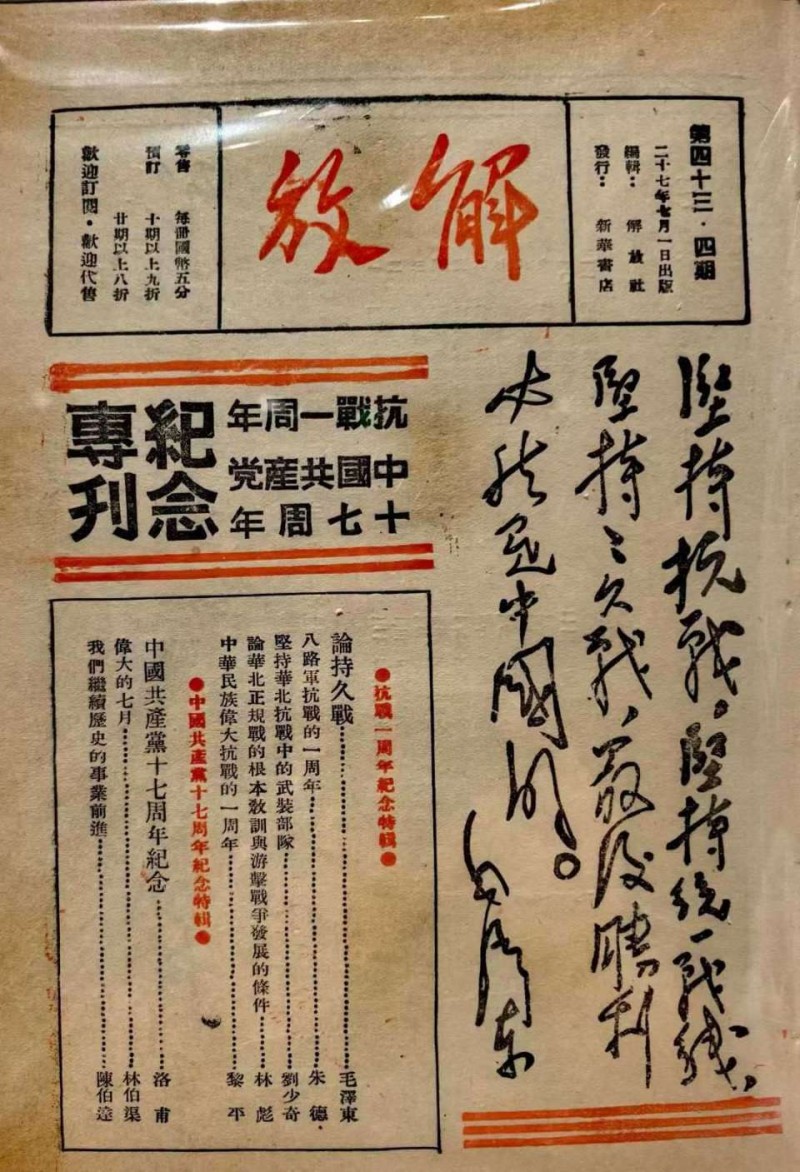 第四十三·四期
二十七年七月一日出版
編輯： 解放社
發行： 新華書店
解放
零售 每冊國幣五分
預訂 十期以上九折
廿期以上八折
歡迎訂閱·歡迎代售
堅持抗戰，堅持統一战线，
堅持〻久戰，最後勝利
必然是中國的。
毛澤东
抗戰一周年
中國共産党
十七周年
紀念
專刊
●抗戰一周年紀念特輯●
論持久戰……毛澤東
八路軍抗戰的一周年……朱德
堅持華北抗戰中的武裝部隊……劉少奇
論華北正規戰的根本教訓與游擊戰爭發展的條件……林彪
中華民族偉大抗戰的一周年……黎平
●中國共產黨十七周年紀念特輯●
中國共產黨十七周年紀念……洛甫
偉大的七月……林伯渠
我們繼續歷史的事業前進……陳伯達